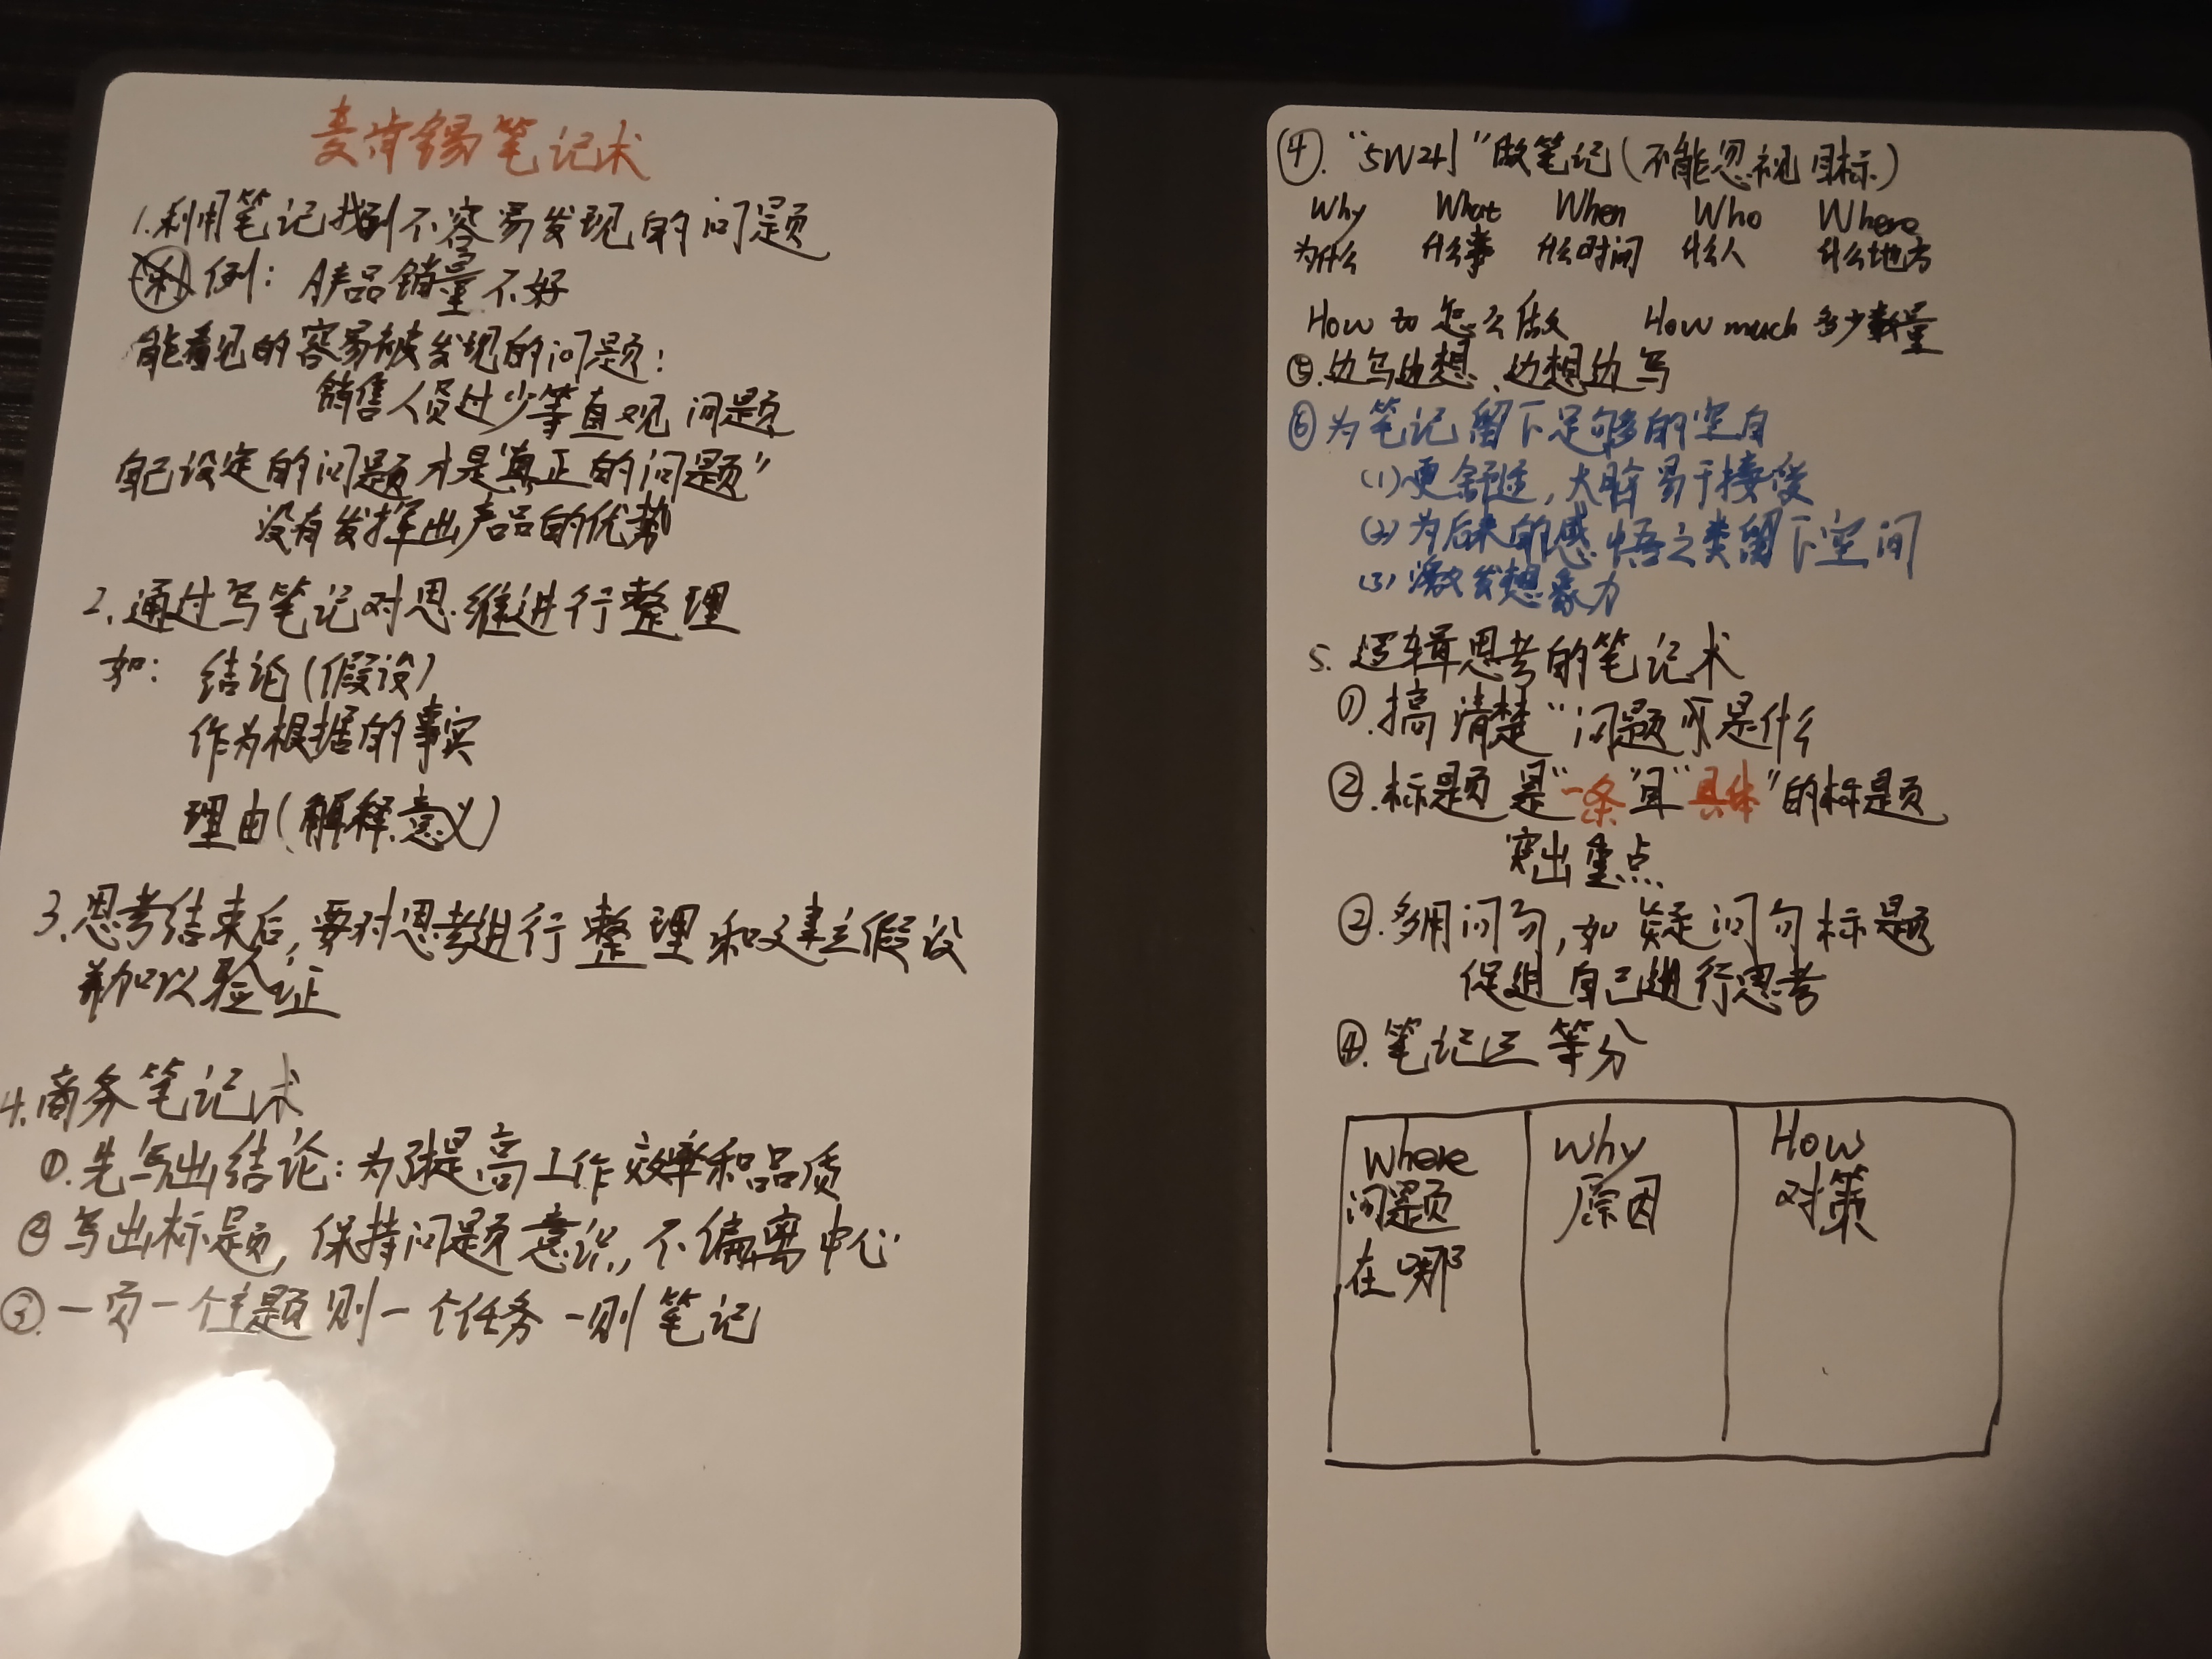 麦肯锡笔记术
1.利用笔记找到不容易发现的问题
例：A产品销量不好
能看见的容易被发现的问题：
销售人员过少等直观问题
自己设定的问题才是“真正的问题”
没有发挥出产品的优势
2.通过写笔记对思维进行整理
如：结论(假设)
作为根据的事实
理由(解释意义)
3.思考结束后,要对思考进行整理和建立假设
并加以验证
4.商务笔记术
①.先写出结论：为了提高工作效率和品质
②写出标题,保持问题意识,不偏离中心
③.一页一个主题则一个任务一则笔记
④.“5W2H”做笔记(不能忽视目标)
Why What When Who Where
为什么 什么事 什么时间 什么人 什么地方
How to 怎么做 How much 多少数量
⑤.边写边想、边想边写
⑥为笔记留下足够的空白
(1)更舒适,大脑易于接受
(2)为后来的感悟之类留下空间
(3)激发想象力
5.逻辑思考的笔记术
①.搞清楚“问题”是什么
②.标题是“一条”且“具体”的标题
突出重点
③.多用问句,如疑问句标题
促进自己进行思考
④.笔记三等分
Where
问题
在哪
Why
原因
How
对策